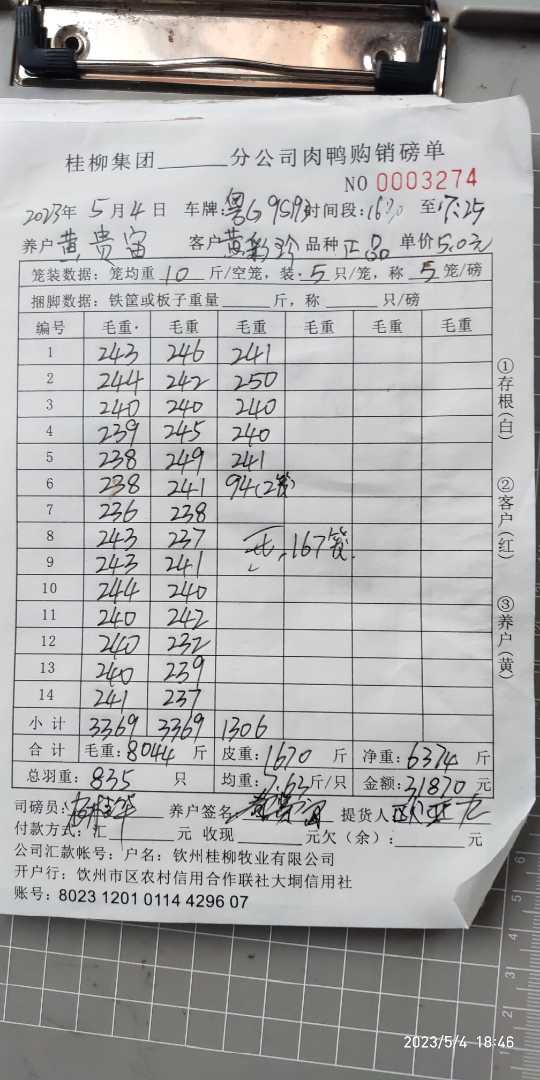 桂柳集团______分公司肉鸭购销磅单
NO 0003274
2023年 5月4日 车牌:粤G 9S193 时间段: 至17:25
养户 黄贵富 客户 黄彩珍 品种 正品 单价 5.0元
笼装数据:笼均重 10 斤/空笼,装 5 只/笼,称 5 笼/磅
捆脚数据:铁筐或板子重量______斤,称______只/磅
编号 毛重 毛重 毛重 毛重 毛重
1 243 246 241
2 244 242 250
3 240 240 240
4 239 245 240
5 238 249 241
6 238 241 94(2笼)
7 236 238
8 243 237
9 243 241
10 244 240
11 240 242
12 240 232
13 240 239
14 241 237
167笼
小计 3369 3369 1306
合计 毛重:8044 斤 皮重:1670 斤 净重:6374 斤
总羽重:835 只 均重:7.63斤/只 金额:31870 元
司磅员: 养户签名: 提货人:
付款方式:汇______元 收现______元欠(余):______元
公司汇款帐号:户名:钦州桂柳牧业有限公司
开户行:钦州市区农村信用合作联社大垌信用社
账号:8023 1201 0114 4296 07
①存根(白) ②客户(红) ③养户(黄)
2023/5/4 18:46